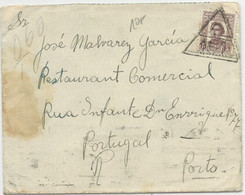 Sr
José Malvarez García
Restaurant Comercial
Rua Infante Dn Enrrique
Portugal
Porto